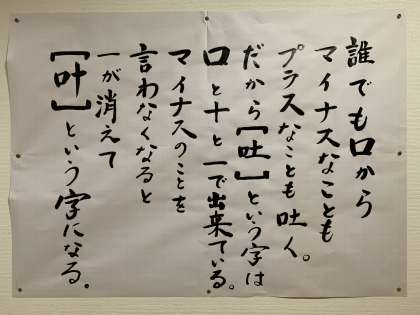 誰でも口から
マイナスなことも
プラスなことも吐く。
だから［吐］という字は
口と十と一で出来ている。
マイナスのことを
言わなくなると
一が消えて
［叶］という字になる。